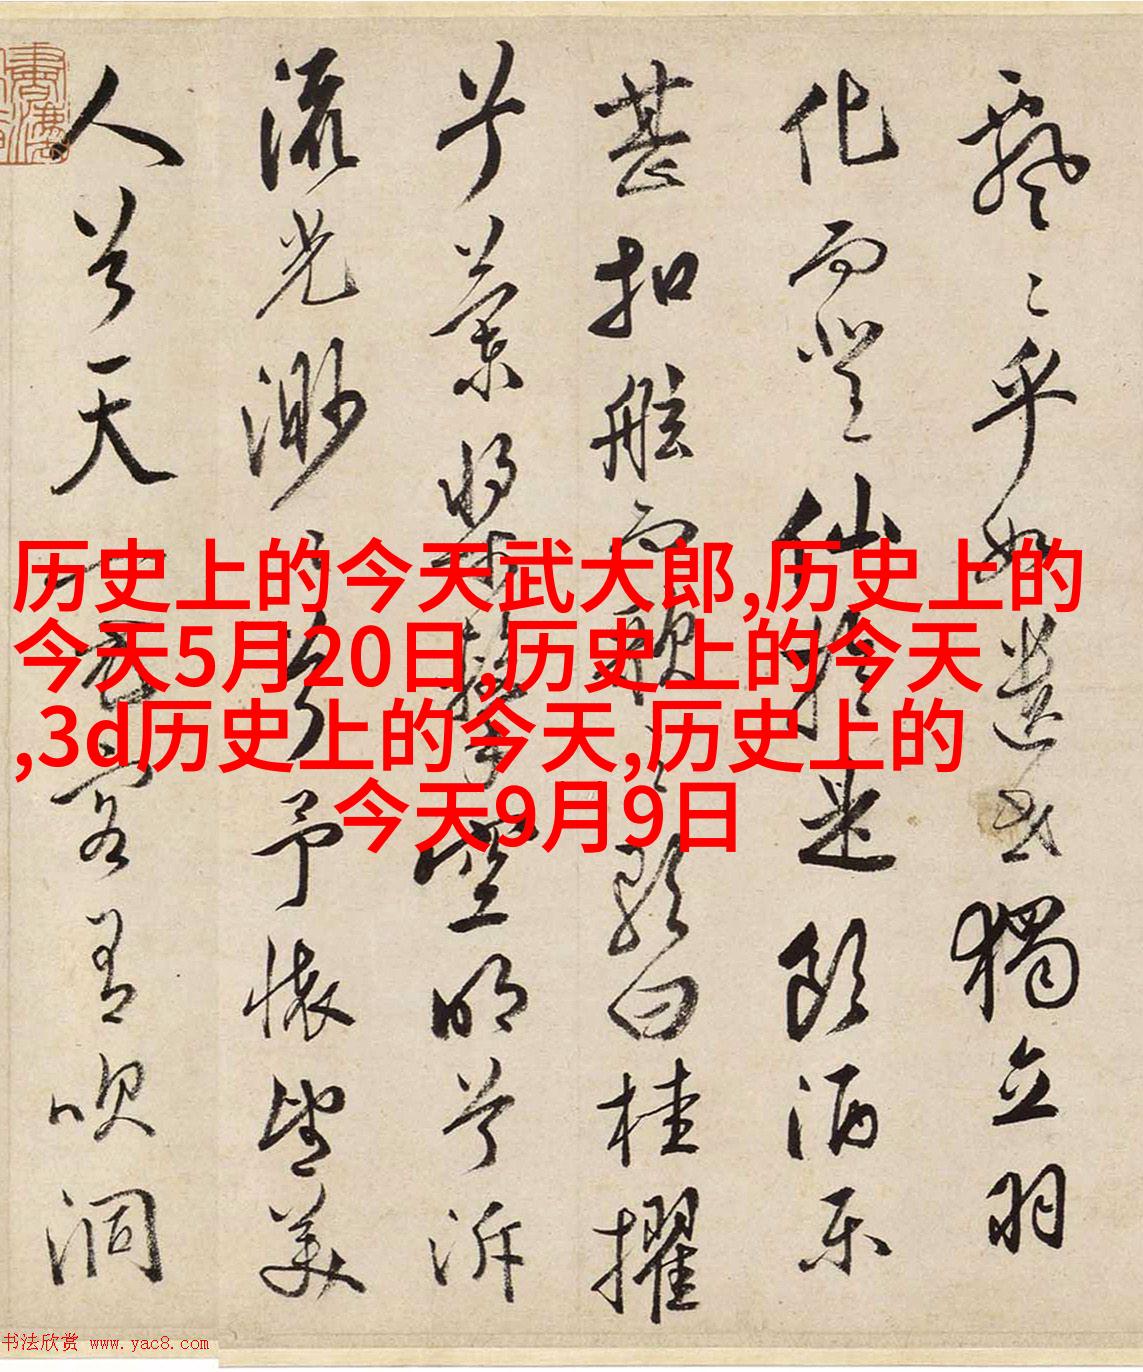 飄〻乎如遺世獨立羽
化而登仙於是飲酒樂
甚扣舷而歌之歌曰桂擢
兮蘭槳擊空明兮泝
流光渺〻兮予懷望美
人兮天一方客有吹洞
历史上的今天武大郎,历史上的
今天5月20日,历史上的今天
,3d历史上的今天,历史上的
今天9月9日
书法欣赏 www.yac8.com